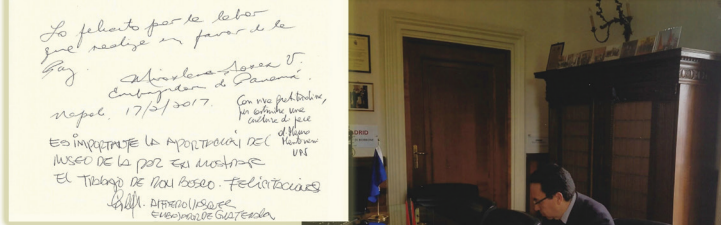 Lo felicito por la labor
que realiza en favor de la
Paz.
Rosa V.
Embajadora de Panamá.
Napoli, 17/2/2017.
Con viva gratitudine,
per costruire una
cultura di pace
ES IMPORTANTE LA APORTACIÓN DEL
MUSEO DE LA PAZ EN MOSTRAR
EL TRABAJO DE DON BOSCO. FELICITACIONES
ALFREDO VASQUEZ
EMBAJADOR DE GUATEMALA